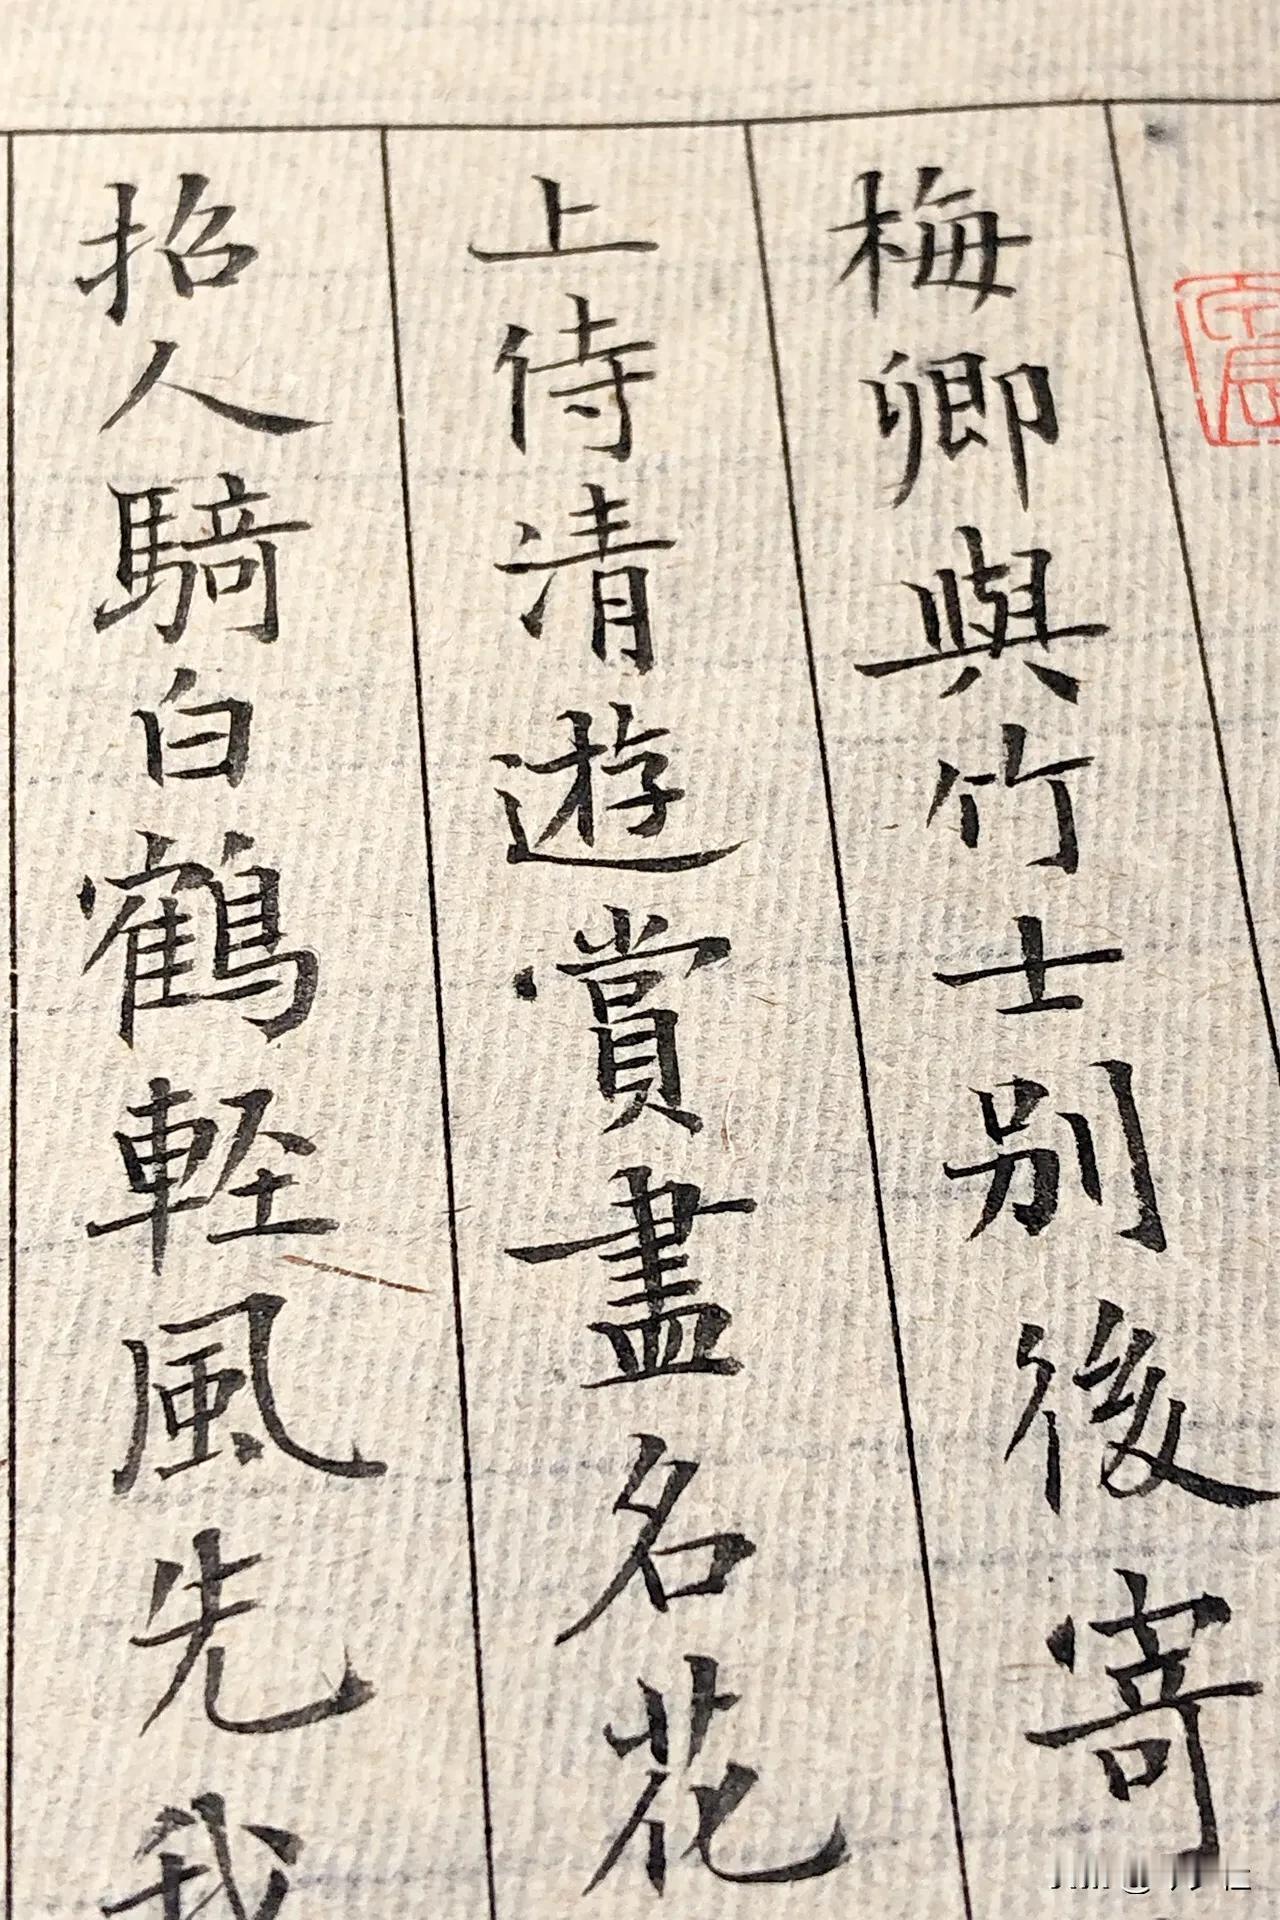 梅卿與竹士別後寄
上侍清遊賞盡名花
招人騎白鶴軽風先我